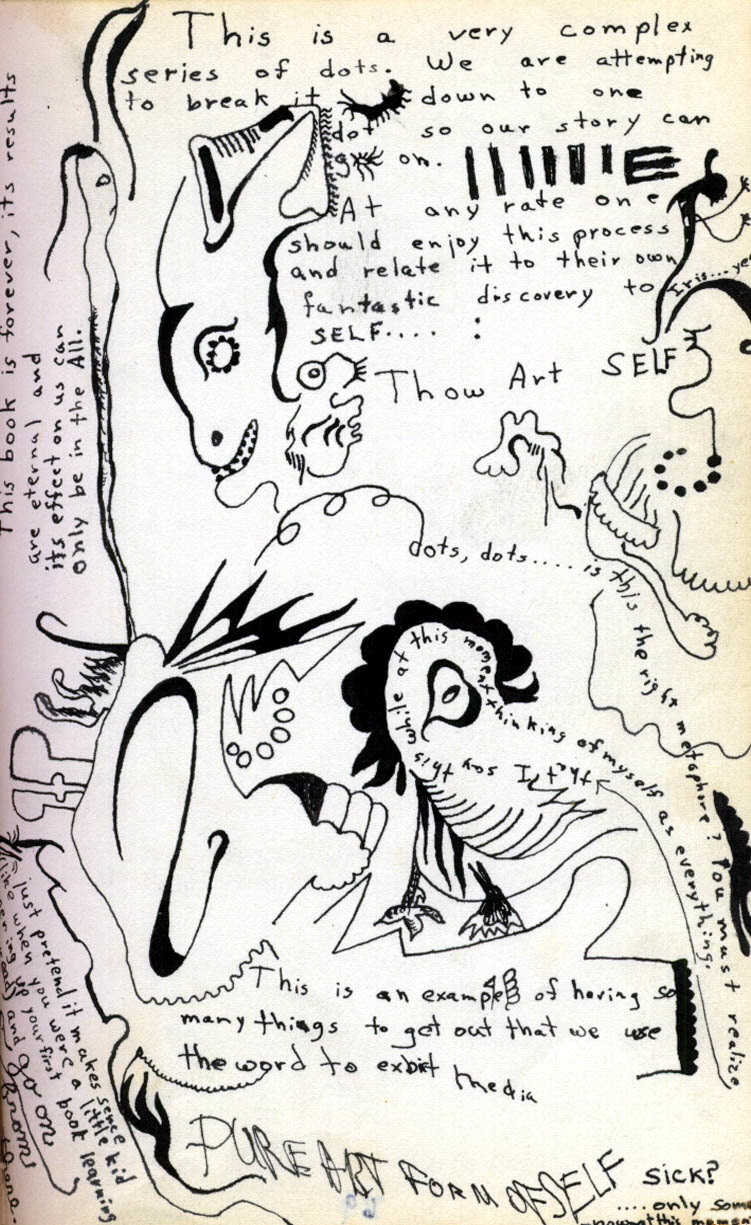 This is a very complex
series of dots. We are attempting
to break it down to one
dot so our story can
go on.
At any rate one
should enjoy this process
and relate it to their own
fantastic discovery to
SELF.... :
Thow Art SELF
Iris...
dots, dots.....is this the right metaphore? You must realize
that I say this
while at this moment thinking of myself as everything.
This is an example of having so
many things to get out that we use
the word to exbit media
PURE ART FORM OF SELF
SICK?
....only som
This book is forever, its results
are eternal and
its effect on us can
only be in the All.
just pretend it makes sence
like when you were a little kid
your first book learning
and go on
from